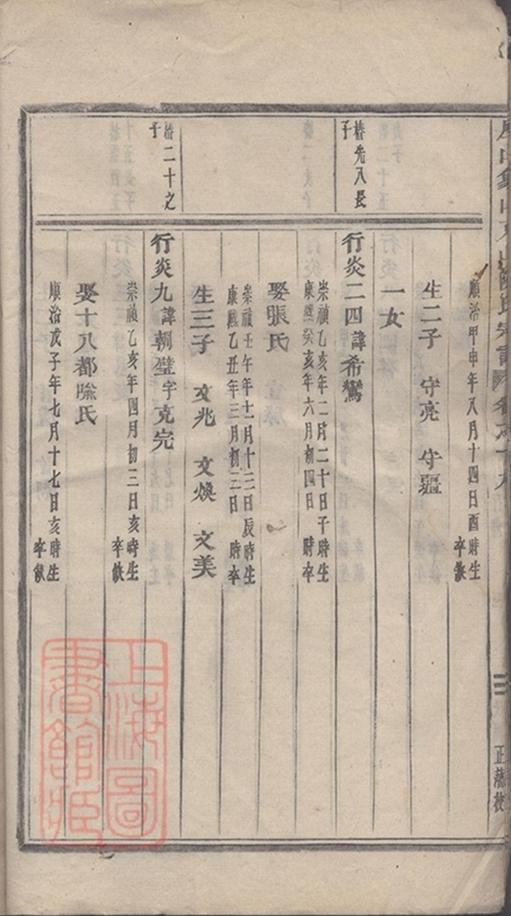 順治甲申年八月十四日酉時生
卒缺
生二子 守亮 守疆
一女
椿先八長
子
行炎二四諱希鸞
崇禎乙亥年二月二十日子時生
康熙癸亥年六月初四日 時卒
娶張氏
崇禎壬午年十二月十三日辰時生
康熙乙丑年三月初三日 時卒
生三子 文兆 文煥 文美
椿二十之
子
行炎九諱朝璧字克完
崇禎乙亥年四月初三日亥時生
卒缺
娶十八都喻氏
順治戊子年七月十七日亥時生
卒缺
上海圖
書館藏